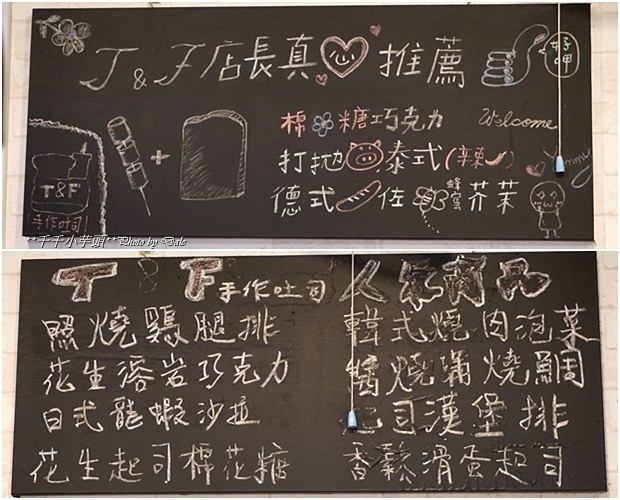 T & F 店長真心推薦
好呷
棉 糖巧克力
Welcome
打拋 泰式(辣 )
Yummy
德式 佐 蜂蜜 芥茉
T&F
手作吐司
**千千小芋頭** Photo by
T & F 手作吐司 人氣商品
照燒雞腿排
韓式燒肉泡菜
花生溶岩巧克力
醬燒蒲燒鯛
日式龍蝦沙拉
起司漢堡排
花生起司棉花糖
香鬆滑蛋起司